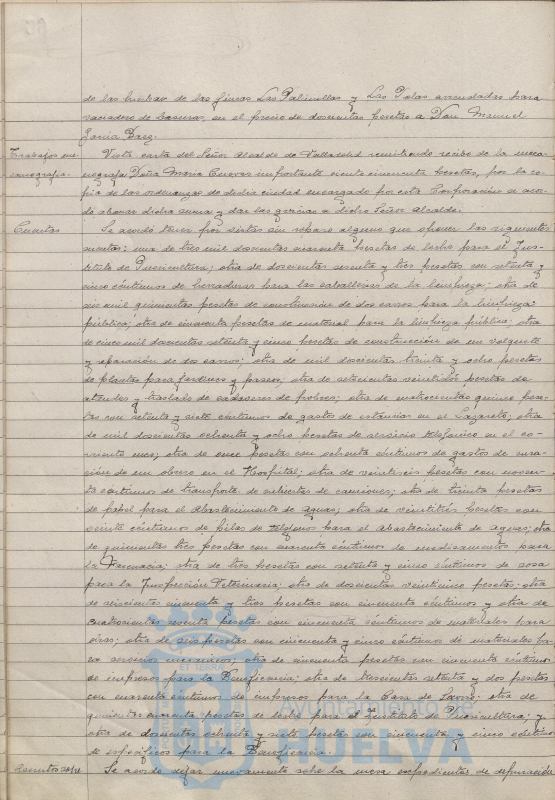 de las huebras de las fincas Las Palmillas y Las Tolas arrendadas para
vaciadero de basuras, en el precio de doscientas pesetas a Don Manuel
García Paez.
Trabajos me-
canografía.
Vista carta del Señor Alcalde de Valladolid remitiendo recibo de la meca-
nografa Doña María Cuevas importante ciento cincuenta pesetas, por la co-
pia de las ordenanzas de dicha ciudad encargado por esta Corporación se acor-
dó abonar dicha suma y dar las gracias a dicho Señor Alcalde.
Cuentas
Se acordó tener por vistas sin reparo alguno que oponer las siguientes
cuentas: una de tres mil doscientas cuarenta pesetas de leche para el Ins-
tituto de Puericultura; otra de doscientas sesenta y tres pesetas con setenta y
cinco céntimos de herraduras para las caballerías de la limpieza; otra de
seis mil quinientas pesetas de construcción de dos carros para la limpieza
pública; otra de cincuenta pesetas de material para la limpieza pública; otra
de cinco mil doscientas setenta y cinco pesetas de construcción de un volquete
y reparación de dos carros; otra de mil doscientas treinta y ocho pesetas
de plantas para jardines y paseos; otra de setecientas veintidós pesetas de
ataudes y traslado de cadáveres de pobres; otra de cuatrocientas quince pese-
tas con setenta y siete céntimos de gastos de estancias en el Lazareto; otra
de mil doscientas ochenta y ocho pesetas de servicio telefónico en el co-
rriente mes; otra de once pesetas con ochenta céntimos de gastos de cura-
ción de un obrero en el Hospital; otra de veintiseis pesetas con noven-
ta céntimos de transporte de cubiertas de camiones; otra de treinta pesetas
de papel para el Abastecimiento de aguas; otra de veintitrés pesetas con
veinte céntimos de pilas de teléfonos para el Abastecimiento de aguas; otra
de quinientas tres pesetas con cuarenta céntimos de medicamentos para
la Farmacia; otra de tres pesetas con setenta y cinco céntimos de sosa
para la Inspección Veterinaria; otra de doscientas veinticinco pesetas; otra
de seiscientas cincuenta y tres pesetas con cincuenta céntimos y otra de
cuatrocientas sesenta pesetas con cincuenta céntimos de materiales para
obras; otra de seis pesetas con cincuenta y cinco céntimos de materiales pa-
ra servicios mecánicos; otra de cincuenta pesetas con cincuenta céntimos
de impresos para la Beneficencia; otra de trescientas setenta y dos pesetas
con cuarenta céntimos de impresos para la Casa de Socorro; otra de
quinientas cuarenta pesetas de leche para el Instituto de Puericultura; y
otra de doscientas ochenta y siete pesetas con cincuenta y cinco céntimos
de específicos para la Beneficencia.
Asuntos sobre
Se acordó dejar nuevamente sobre la mesa expedientes de depuración
Ayuntamiento de
HUELVA